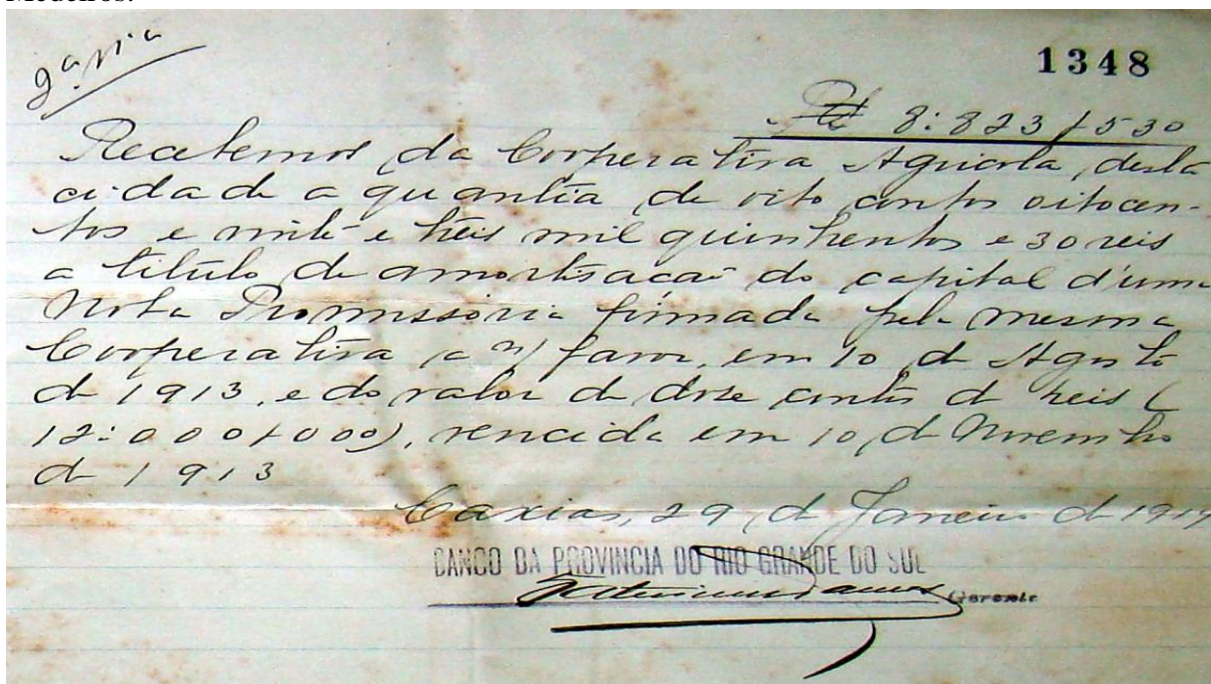 Medeiros.
2ª via
1348
Rs 8:823$530
Recebemos da Cooperativa Agricola desta
cidade a quantia de oito contos oitocen-
tos e vinte e treis mil quinhentos e 30 reis
a titulo de amortisação do capital d'uma
Nota Promissoria firmada pela mesma
Cooperativa a n/ favor, em 10 de Agosto
de 1913, e do valor de doze contos de reis (
12:000$000), vencida em 10 de Novembro
de 1913
Caxias, 29 de Janeiro de 1914
BANCO DA PROVINCIA DO RIO GRANDE DO SUL
Gerente